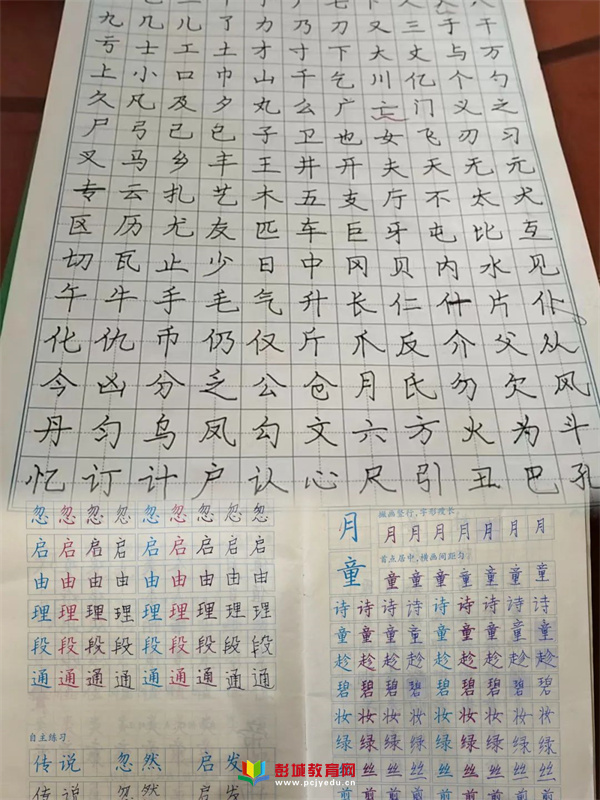 七 八 九 十
九 几 儿 了 力 乃 刀 又 三 于 干
亏 士 工 土 才 寸 下 大 丈 与 万
上 小 口 巾 山 千 乞 川 亿 个 勺
久 凡 及 夕 丸 么 广 亡 门 义 之
尸 弓 己 包 子 卫 也 女 飞 刃 习
叉 马 乡 丰 王 井 开 夫 天 无 元
专 云 扎 艺 木 五 支 厅 不 太 犬
区 历 尤 友 匹 车 巨 牙 屯 比 互
切 瓦 止 少 日 中 冈 贝 内 水 见
午 牛 手 毛 气 升 长 仁 什 片 仆
化 仇 币 仍 仅 斤 爪 反 介 父 从
今 凶 分 乏 公 仓 月 氏 勿 欠 风
丹 匀 乌 凤 勾 文 六 方 火 为 斗
忆 订 计 户 认 心 尺 引 丑 巴 孔
忽 忽 忽 忽 忽 忽 忽 忽
启 启 启 启 启 启 启 启
由 由 由 由 由 由 由 由
理 理 理 理 理 理 理 理
段 段 段 段 段 段 段 段
通 通 通 通 通 通 通 通
自主练习
传 说 忽 然 启 发
传 说 忽 然 启 发
月
月 月 月 月 月 月 月
童
首点居中，横画间距匀。
童 童 童 童 童 童 童
诗 诗 诗 诗 诗 诗 诗 诗 诗
童 童 童 童 童 童 童 童 童
趁 趁 趁 趁 趁 趁 趁 趁 趁
碧 碧 碧 碧 碧 碧 碧 碧 碧
妆 妆 妆 妆 妆 妆 妆 妆 妆
绿 绿 绿 绿 绿 绿 绿 绿 绿
丝 丝 丝 丝 丝 丝 丝 丝 丝
剪 剪 剪 剪 剪 剪 剪 剪 剪
彭城教育网
www.pcjyedu.cn